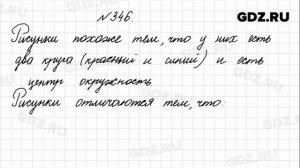 №346
GDZ.RU
Рисунки похожи тем, что у них есть
два круга (красный и синий) и есть
центр окружность
Рисунки отличаются тем, что: